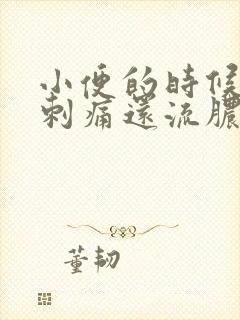 小便的時候
刺痛還流膿
董韌